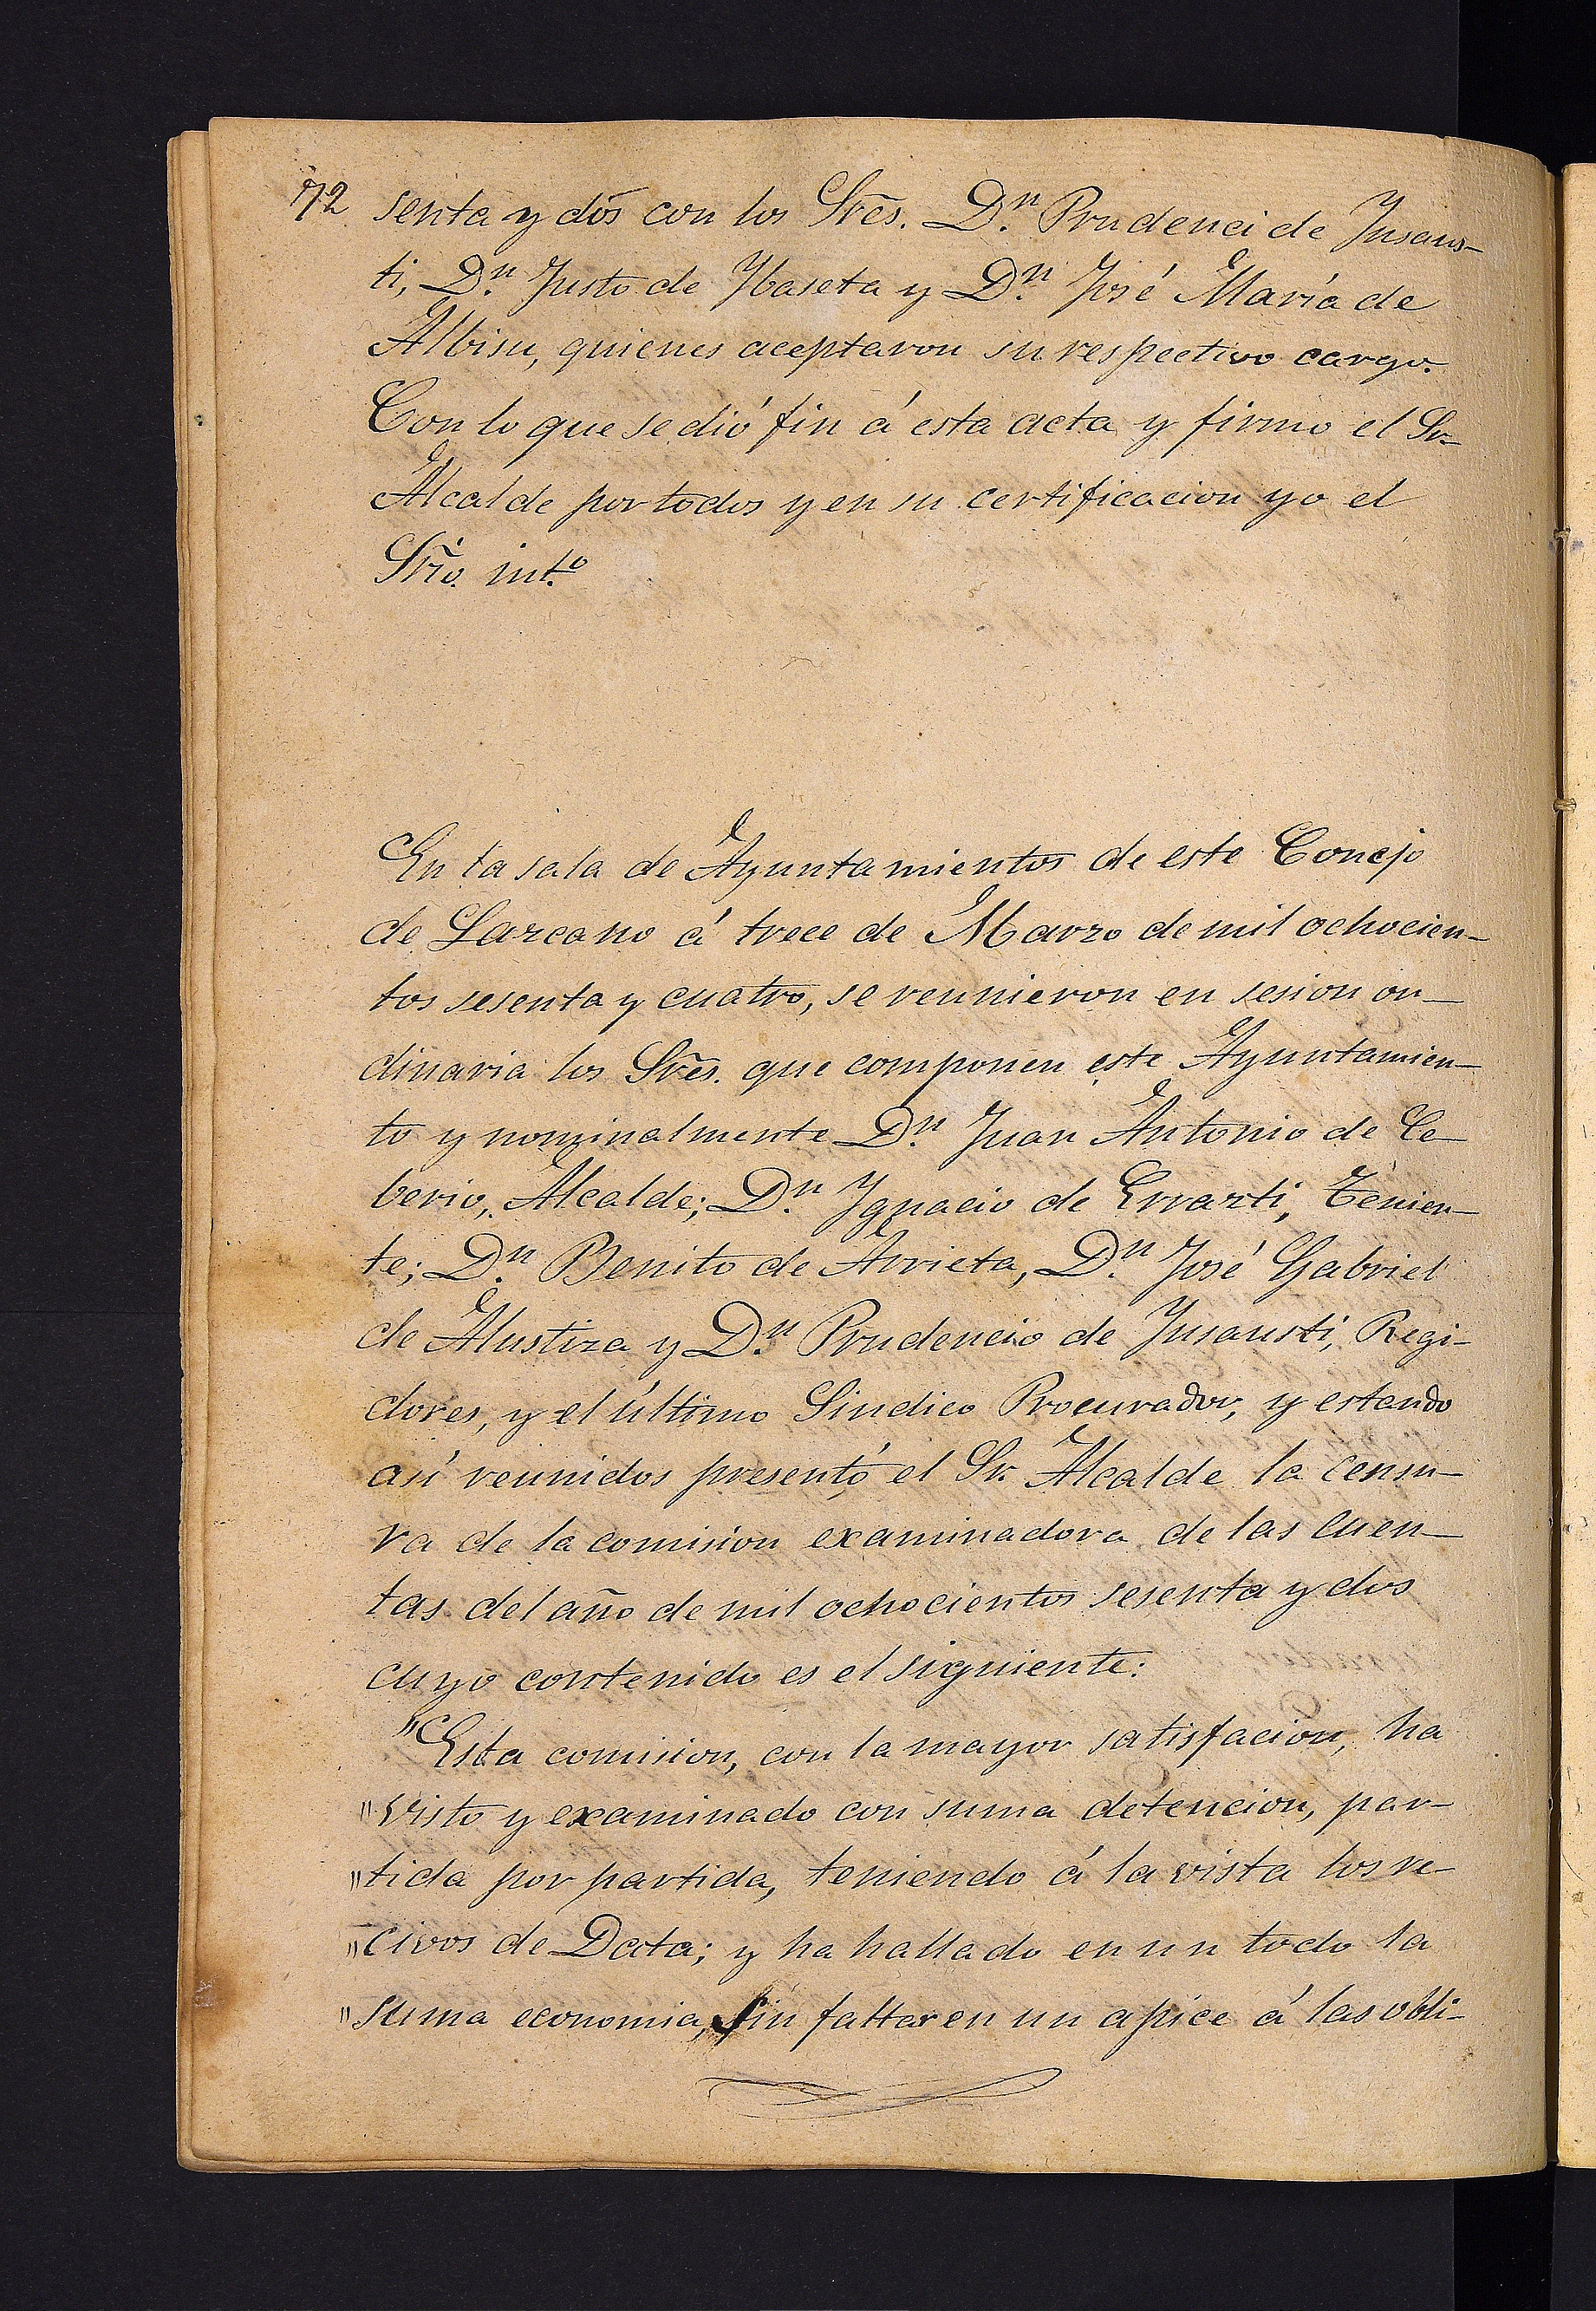 72 senta y dos con los Srẽs. Dⁿ. Prudenci de Insaus-
ti, Dⁿ. Justo de Ybaseta y Dⁿ. José María de
Albisu, quienes aceptaron su respectivo cargo.
Con lo que se dió fin á esta acta y firmo el Sr.
Alcalde por todos y en su certificacion yo el
Srio. int.º
En la sala de Ayuntamientos de este Concejo
de Lazcano á trece de Marzo de mil ochocien-
tos sesenta y cuatro, se reunieron en sesion or-
dinaria los Srẽs. que componen este Ayuntamien-
to y nominalmente Dⁿ. Juan Antonio de Ce-
berio, Alcalde; Dⁿ. Ygnacio de Errazti, Tenien-
te; Dⁿ. Benito de Arrieta, Dⁿ. José Gabriel
de Alustiza y Dⁿ. Prudencio de Insausti, Regi-
dores, y el último Sindico Procurador, y estando
así reunidos presentó el Sr. Alcalde la censu-
ra de la comision examinadora de las cuen-
tas del año de mil ochocientos sesenta y dos
cuyo contenido es el siguiente:
"Esta comision, con la mayor satisfacion, ha
"visto y examinado con suma detencion, par-
"tida por partida, teniendo á la vista los re-
"civos de Data; y ha hallado en un todo la
"suma economia, sin faltar en un apice á las obli-